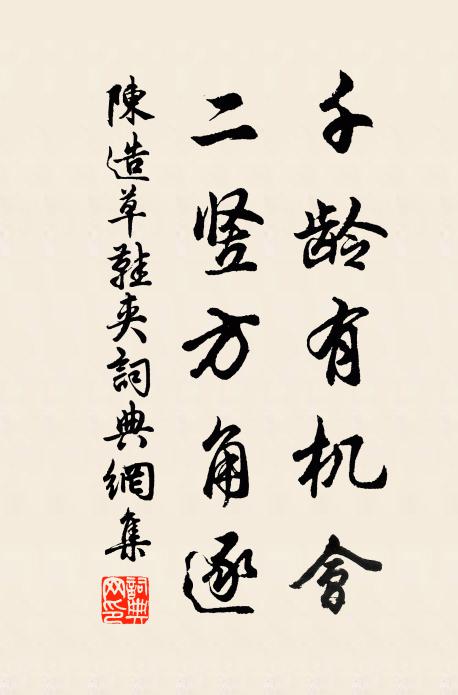 千龄有机會
二竖方角逐
陳造草鞋夾詞典網集
詞典网印